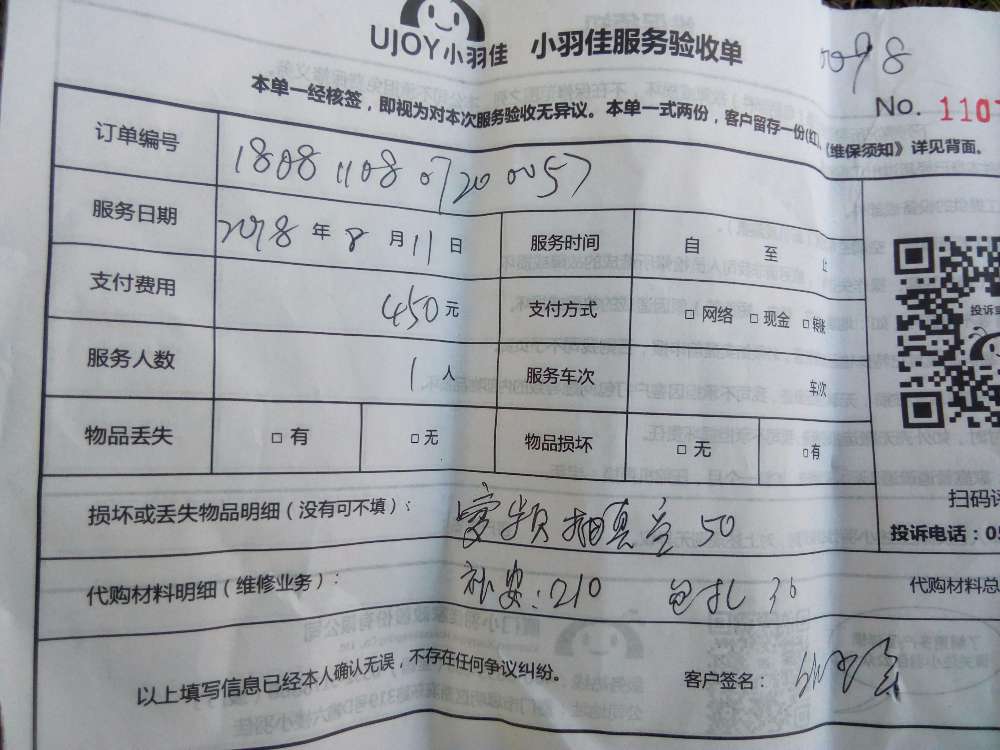 UJOY小羽佳 小羽佳服务验收单
No. 1107
本单一经核签，即视为对本次服务验收无异议。本单一式两份，客户留存一份(红)，《维保须知》详见背面。
订单编号 18081108 0720 0057
服务日期 2018 年 8 月 11 日 服务时间 自 至 止
支付费用 450 元 支付方式 □ 网络 □ 现金 □ 转账
服务人数 1 人 服务车次 车次
物品丢失 □ 有 □ 无 物品损坏 □ 无 □ 有
投诉
扫码
投诉电话：05
损坏或丢失物品明细（没有可不填）： 变频抽真空 50
代购材料明细（维修业务）： 补安：210 包扎 30 代购材料总
以上填写信息已经本人确认无误，不存在任何争议纠纷。 客户签名：